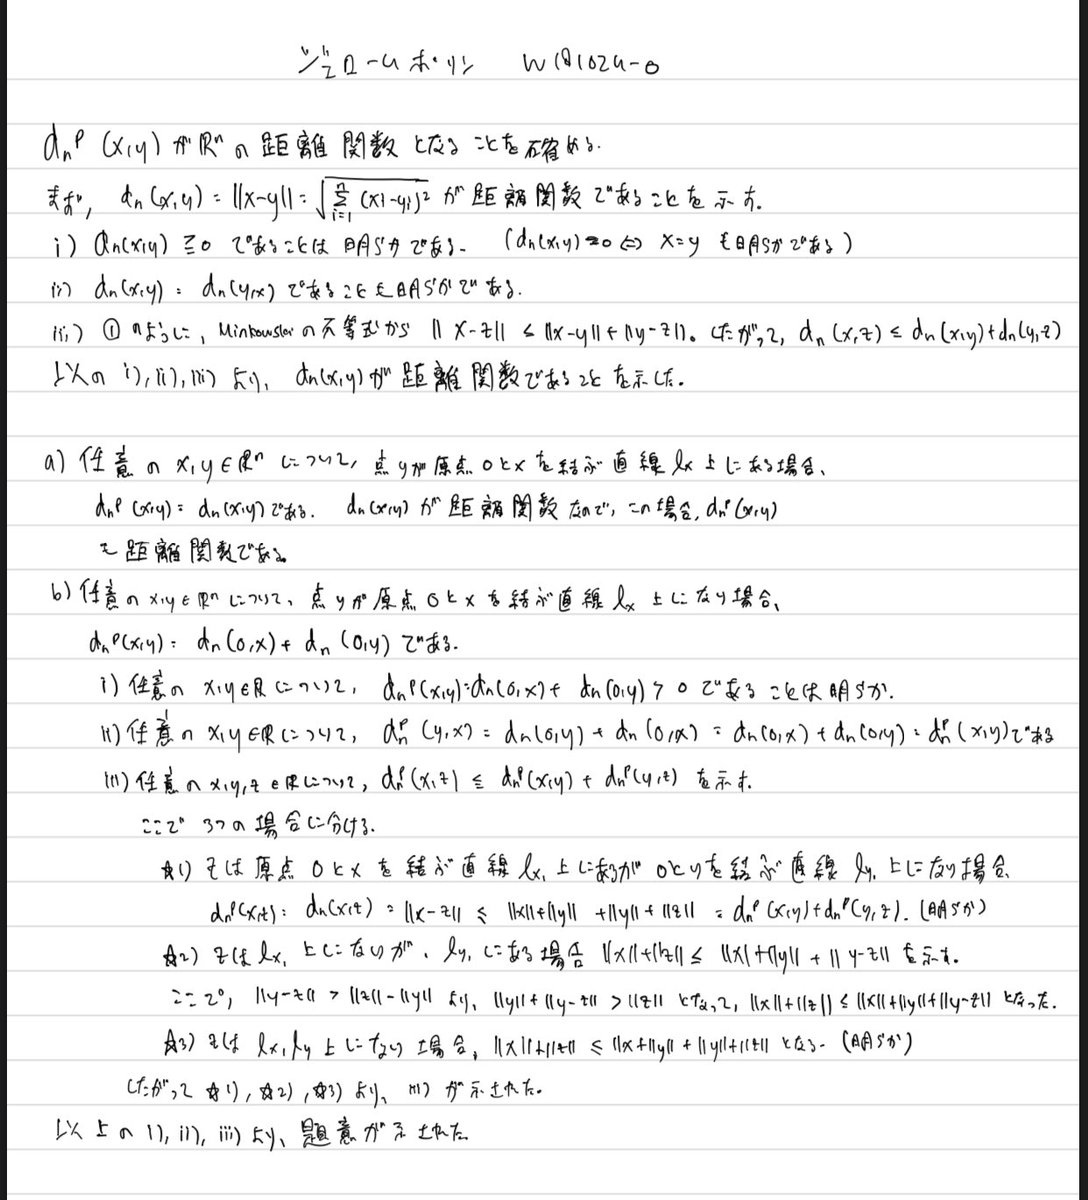 ジェロームポリン W181024-0
dₙᵖ (x,y) が ℝⁿ の 距離 関数 となる ことを 確める.
まず, dₙ(x,y) = ||x-y|| = √(Σ_{i=1}^{n} (xi-yi)²) が 距離 関数 であることを 示す.
i) dₙ(x,y) ≧0 であることは 明らかである. (dₙ(x,y)=0 ⇔ x=y も明らかである)
ii) dₙ(x,y) = dₙ(y,x) であることも明らかである.
iii) ① のように, Minkowski の不等式から ||x-z|| ≤ ||x-y||+||y-z||。 したがって, dₙ(x,z) ≤ dₙ(x,y)+dₙ(y,z)
以上の i),ii),iii) より、 dₙ(x,y)が 距離 関数であることを示した.
a) 任意の x,y∈ℝⁿ について, 点yが原点0とxを結ぶ直線 lₓ 上にある場合、
dₙᵖ (x,y) = dₙ(x,y)である. dₙ(x,y) が 距離 関数 なので, この場合, dₙᵖ(x,y)
も 距離 関数である。
b) 任意の x,y∈ℝⁿ について、 点 y が 原点 0 と x を 結ぶ 直線 lₓ 上にない場合、
dₙᵖ(x,y) = dₙ(0,x) + dₙ (0,y) である.
i) 任意の x,y∈ℝ について, dₙᵖ(x,y)=dₙ(0,x)+ dₙ(0,y) > 0 であることは明らか.
ii) 任意の x,y∈ℝ について, dₙᵖ (y,x) = dₙ(0,y) + dₙ (0,x) = dₙ(0,x) + dₙ(0,y) = dₙᵖ(x,y)である
iii) 任意の x,y,z ∈ℝ について, dₙᵖ(x,z) ≤ dₙᵖ(x,y) + dₙᵖ(y,z) を示す.
ここで 3つの 場合に分ける.
☆1) zは 原点 0とx を 結ぶ 直線 lₓ, 上にあるが 0とyを結ぶ 直線 l_y, 上にない場合、
dₙᵖ(x,z) = dₙ(x,z) = ||x-z|| ≤ ||x||+||y|| +||y||+||z|| = dₙᵖ(x,y)+dₙᵖ(y,z). (明らか)
☆2) zは lₓ, 上にないが、 l_y, にある 場合 ||x||+||z|| ≤ ||x||+||y|| + ||y-z|| を示す.
ここで, ||y-z|| > ||z||-||y|| より, ||y||+||y-z|| > ||z|| となって, ||x||+||z|| ≤ ||x||+||y||+||y-z|| となった.
☆3) zは lₓ, l_y 上にない 場合, ||x||+||z|| ≤ ||x+||y|| + ||y||+||z|| となる. (明らか)
したがって ☆1), ☆2), ☆3) より, iii) が示された.
以上の i), ii), iii) より、題意が示された.